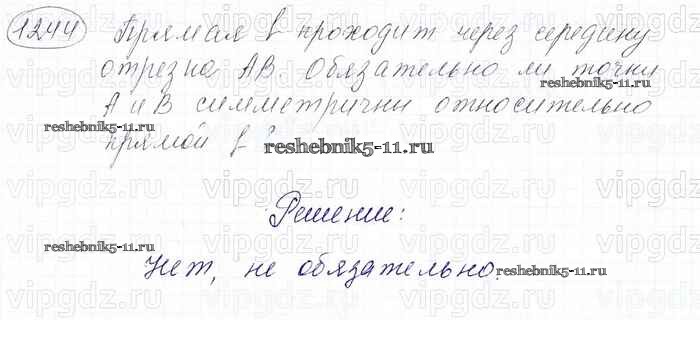 1244 Прямая l проходит через середину
отрезка AB. Обязательно ли точки
A и B симметричны относительно
прямой l?
Решение:
Нет, не обязательно.
reshebnik5-11.ru
reshebnik5-11.ru
reshebnik5-11.ru
reshebnik5-11.ru
reshebnik5-11.ru
vipgdz.ru